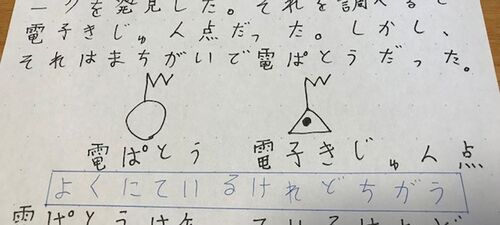 ークを発見した。それを調べると
電子きじゅん点だった。しかし、
それはまちがいで電ぱとうだった。
電ぱとう 電子きじゅん点
よくにているけれどちがう
電ぱとうは